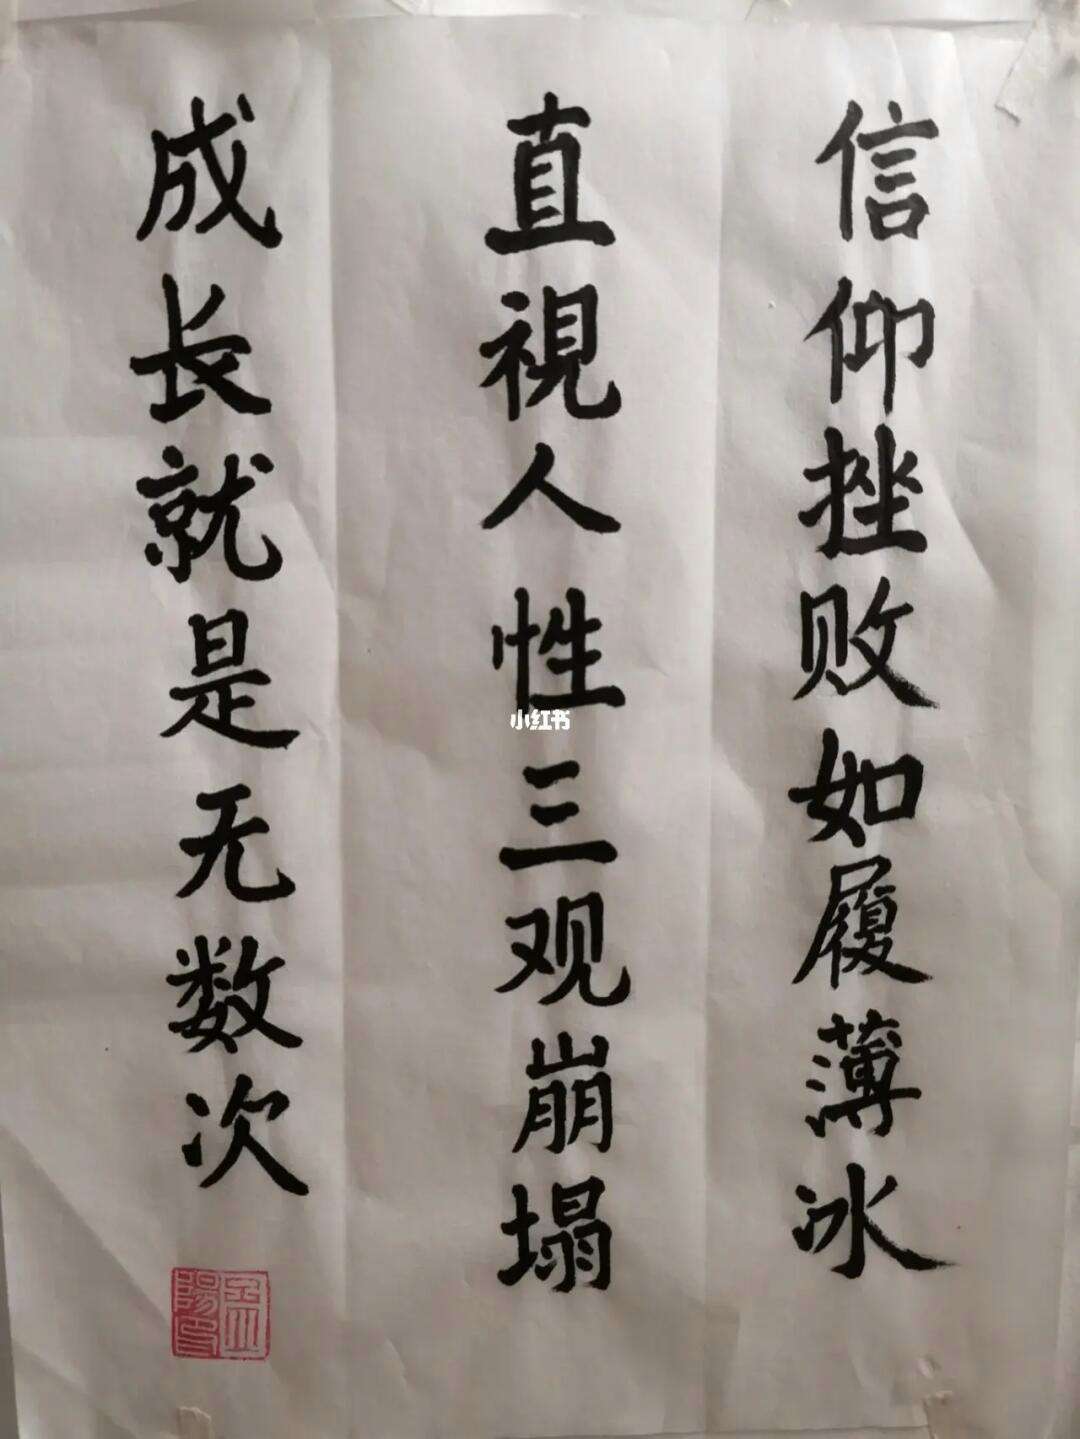 信仰挫败如履薄冰
直視人性三观崩塌
成长就是无数次
小红书